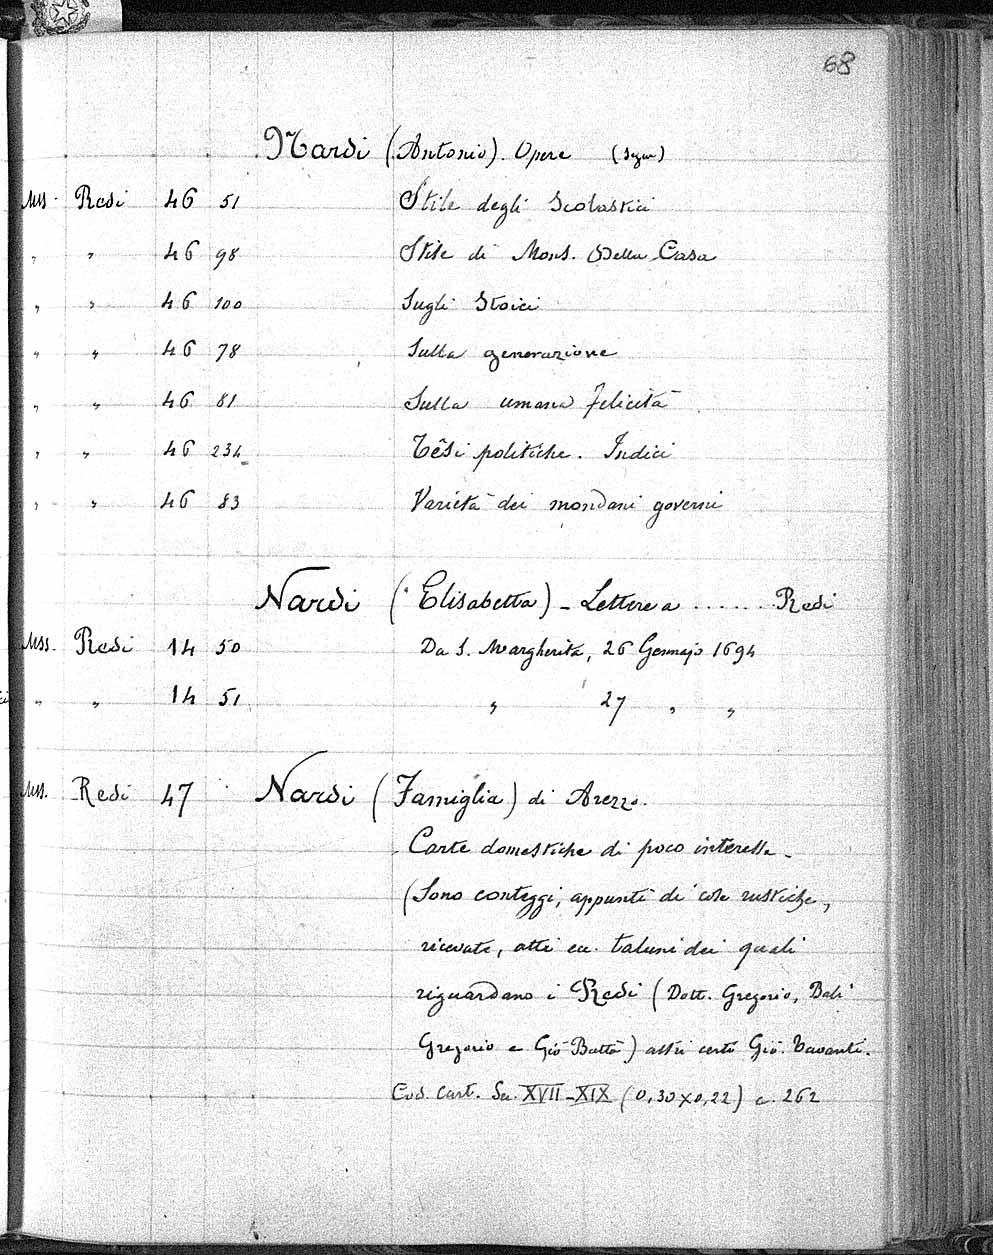 68
Nardi (Antonio). Opere (segue)
Mss. Redi 46 51 Stile degli Scolastici
" " 46 98 Stile di Mons. Della Casa
" " 46 100 Sugli Stoici
" " 46 78 Sulla generazione
" " 46 81 Sulla umana felicità
" " 46 234 Têsi politiche. Indici
" " 46 83 Varietà dei mondani governi
Nardi (Elisabetta) - Lettere a ...... Redi
Mss. Redi 14 50 Da S. Margherita, 26 Gennajo 1694
" " 14 51 " 27 " "
Mss. Redi 47 Nardi (Famiglia) di Arezzo.
Carte domestiche di poco interesse -
(Sono conteggi, appunti di cose rustiche,
ricevute, atti ec. taluni dei quali
riguardano i Redi (Dott. Gregorio, Balì
Gregorio e Giô Battâ) altri certi Giô. Vavanti.
Cod. cart. Sec. XVII-XIX (0,30 x 0,22) c. 262